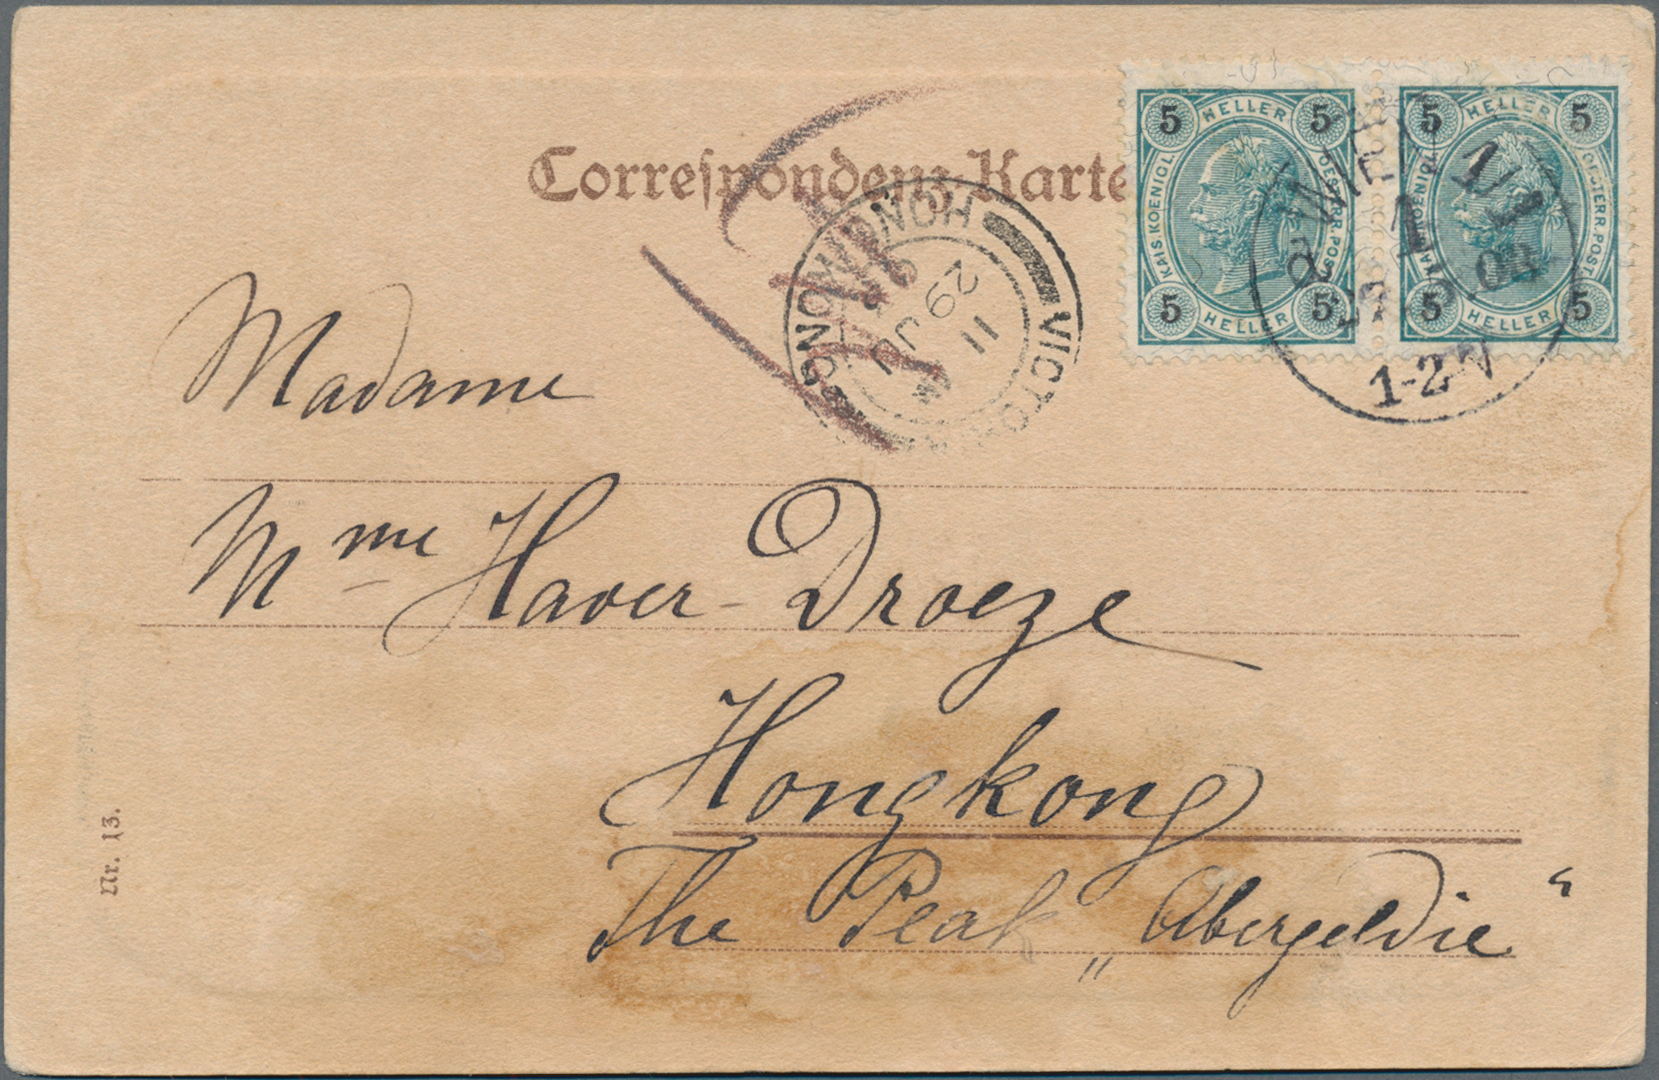 Correspondenz-Karte
5 HELLER 5
KAIS. KOENIGL. OESTERR. POST.
5 HELLER 5
5 HELLER 5
KAIS. KOENIGL. OESTERR. POST.
5 HELLER 5
WIEN 1/1
1
1-2 N
VICTORIA HONG KONG
11
29 JU
Madame
Mme Haver-Droeze
Hongkong
The Peak „Abergeldie“
Nr. 13.